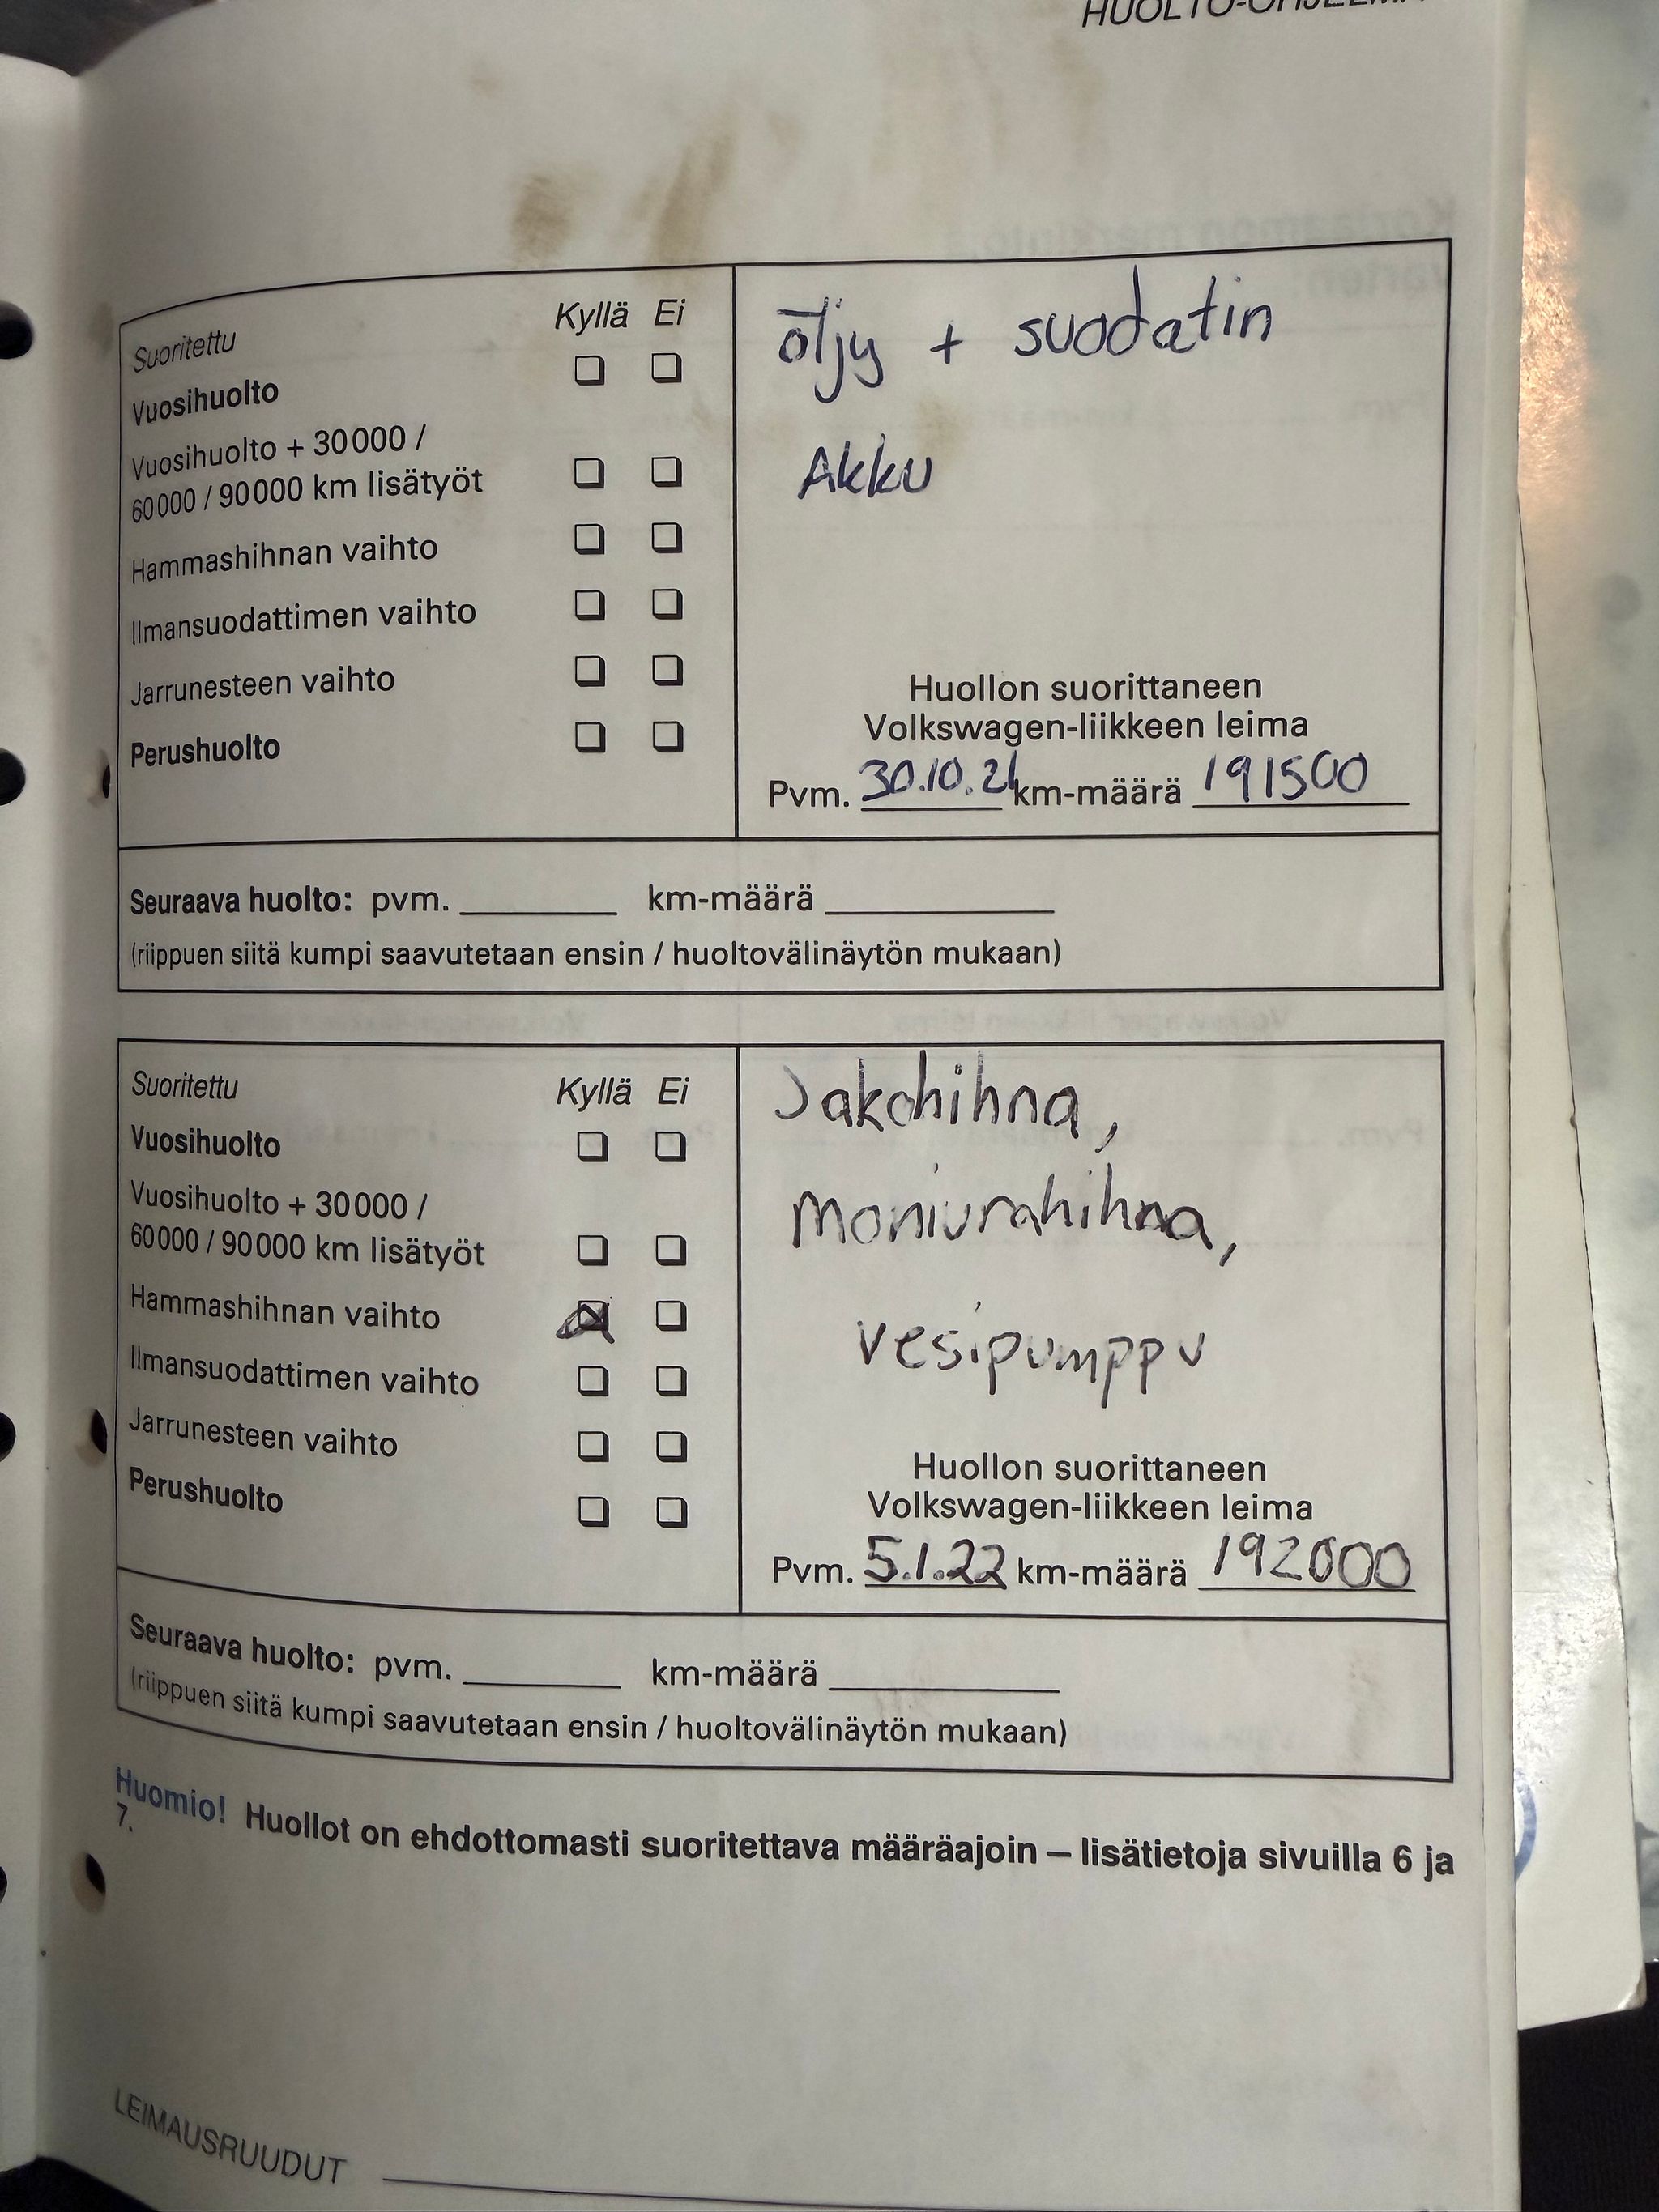 HUOLTO-OHJELMA
Suoritettu Kyllä Ei
Vuosihuolto
Vuosihuolto + 30 000 /
60 000 / 90 000 km lisätyöt
Hammashihnan vaihto
Ilmansuodattimen vaihto
Jarrunesteen vaihto
Perushuolto
öljy + suodatin
Akku
Huollon suorittaneen
Volkswagen-liikkeen leima
Pvm. 30.10.21 km-määrä 191500
Seuraava huolto: pvm. km-määrä
(riippuen siitä kumpi saavutetaan ensin / huoltovälinäytön mukaan)
Suoritettu Kyllä Ei
Vuosihuolto
Vuosihuolto + 30 000 /
60 000 / 90 000 km lisätyöt
Hammashihnan vaihto
Ilmansuodattimen vaihto
Jarrunesteen vaihto
Perushuolto
Jakohihna,
moniurahihna,
vesipumppu
Huollon suorittaneen
Volkswagen-liikkeen leima
Pvm. 5.1.22 km-määrä 192000
Seuraava huolto: pvm. km-määrä
(riippuen siitä kumpi saavutetaan ensin / huoltovälinäytön mukaan)
Huomio! Huollot on ehdottomasti suoritettava määräajoin – lisätietoja sivuilla 6 ja
7.
LEIMAUSRUUDUT